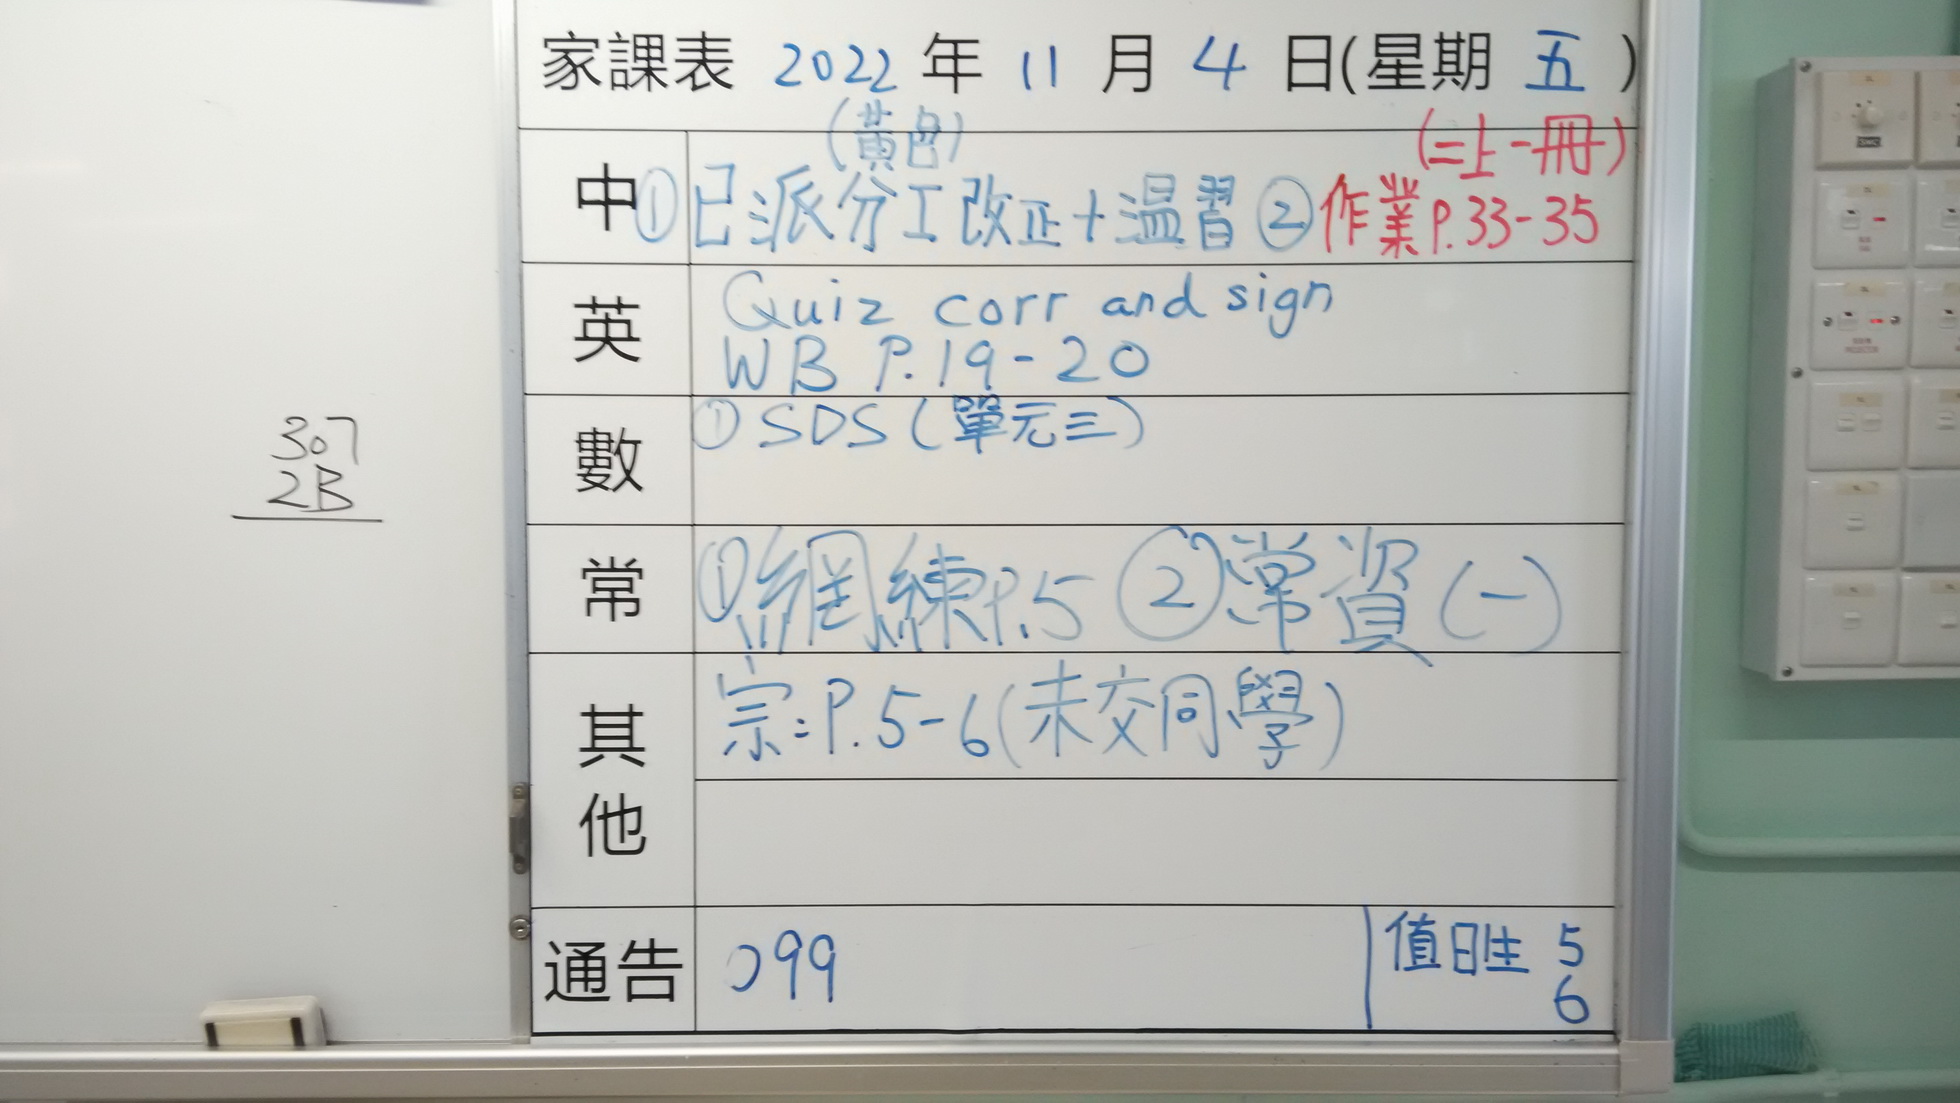 家課表 2022 年 11 月 4 日(星期 五 )
(黃色) (二上一冊)
中 ① 已派分工改正+溫習 ② 作業P.33-35
英 Quiz corr and sign
WB P.19-20
數 ① SDS (單元三)
常 ① 網練P.5 ② 常資(一)
其他 宗:P.5-6(未交同學)
通告 099 值日生 5
6
307
2B